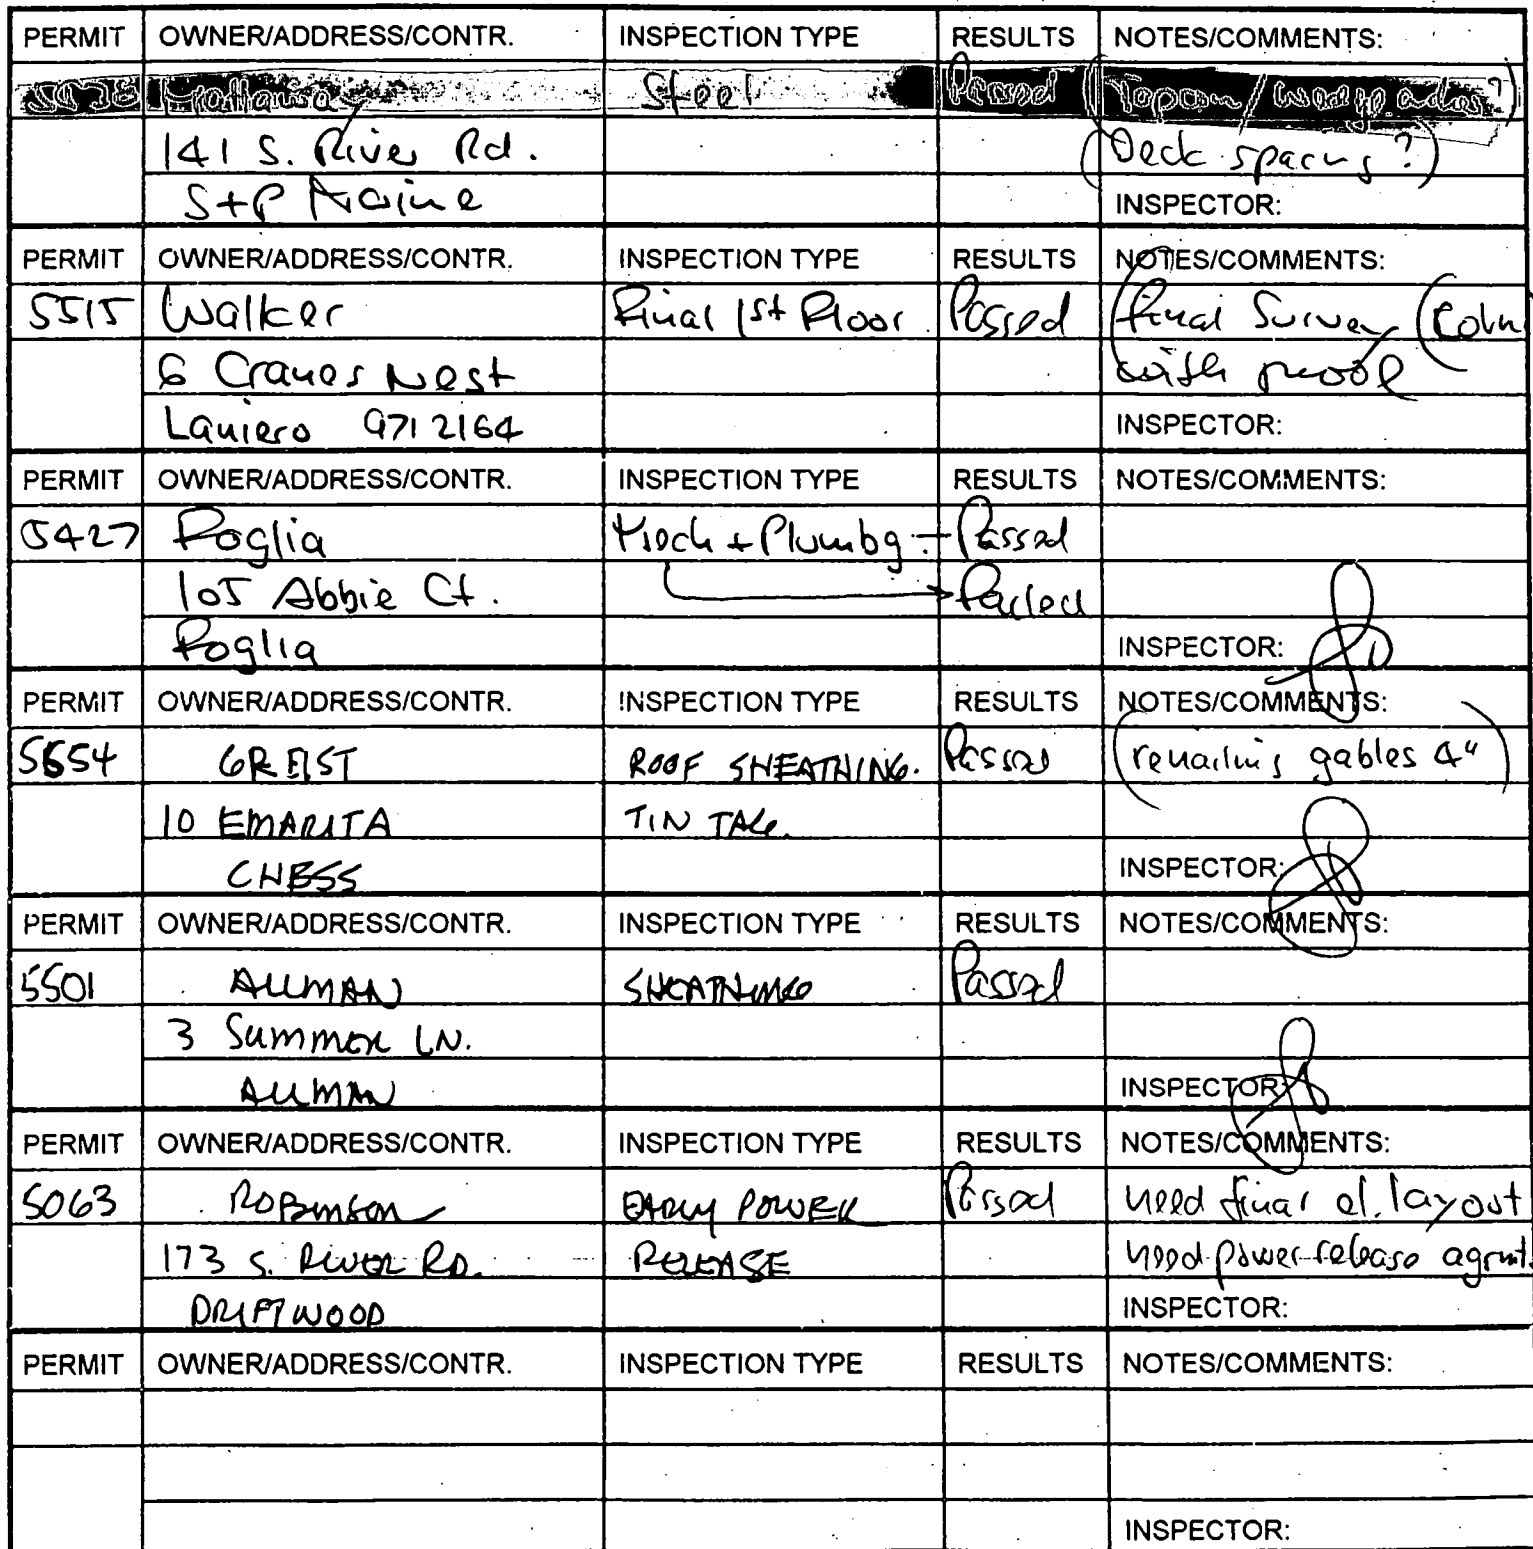 PERMIT OWNER/ADDRESS/CONTR. INSPECTION TYPE RESULTS NOTES/COMMENTS:
Steel Passed
141 S. River Rd. (Deck spacing?)
S+P Marine INSPECTOR:
PERMIT OWNER/ADDRESS/CONTR. INSPECTION TYPE RESULTS NOTES/COMMENTS:
5515 Walker Final 1st Floor Passed (final Survey
6 Cranes Nest with proof
Laniero 971 2164 INSPECTOR:
PERMIT OWNER/ADDRESS/CONTR. INSPECTION TYPE RESULTS NOTES/COMMENTS:
5427 Foglia Mech + Plumbg. Passed
105 Abbie Ct. Failed
Foglia INSPECTOR:
PERMIT OWNER/ADDRESS/CONTR. INSPECTION TYPE RESULTS NOTES/COMMENTS:
5554 GREIST ROOF SHEATHING. Passed (renailing gables 4")
10 EMARITA TIN TAG.
CHESS INSPECTOR:
PERMIT OWNER/ADDRESS/CONTR. INSPECTION TYPE RESULTS NOTES/COMMENTS:
5501 ALLMAN SHEATHING Passed
3 SUMMER LN.
ALLMAN INSPECTOR:
PERMIT OWNER/ADDRESS/CONTR. INSPECTION TYPE RESULTS NOTES/COMMENTS:
5063 ROBINSON EARLY POWER Passed need final el. layout
173 S. RIVER RD. RELEASE need power release agrmt.
DRIFTWOOD INSPECTOR:
PERMIT OWNER/ADDRESS/CONTR. INSPECTION TYPE RESULTS NOTES/COMMENTS:
INSPECTOR: